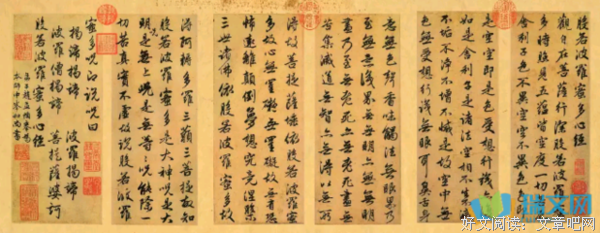 般若波羅蜜多心經
觀自在菩薩行深般若波羅蜜
多時照見五蘊皆空度一切苦
厄舍利子色不異空空不異色色即
是空空即是色受想行識亦復
如是舍利子是諸法空相不生不滅
不垢不淨不增不減是故空中無
色無受想行識無眼耳鼻舌身
意無色聲香味觸法無眼界乃
至無意識界無無明亦無無明
盡乃至無老死亦無老死盡無
苦集滅道無智亦無得以無所
得故菩提薩埵依般若波羅蜜
多故心無罣礙無罣礙故無有恐
怖遠離顛倒夢想究竟涅槃
三世諸佛依般若波羅蜜多故
得阿耨多羅三藐三菩提故知
般若波羅蜜多是大神呪是大
明呪是無上呪是無等等呪能除一
切苦真實不虛故說般若波羅
蜜多呪即說呪曰
揭諦揭諦 波羅揭諦
波羅僧揭諦 菩提薩婆訶
般若波羅蜜多心經
弟子趙孟頫奉為
本師中峰和尚書
瑞文网
好文阅读：文章吧网